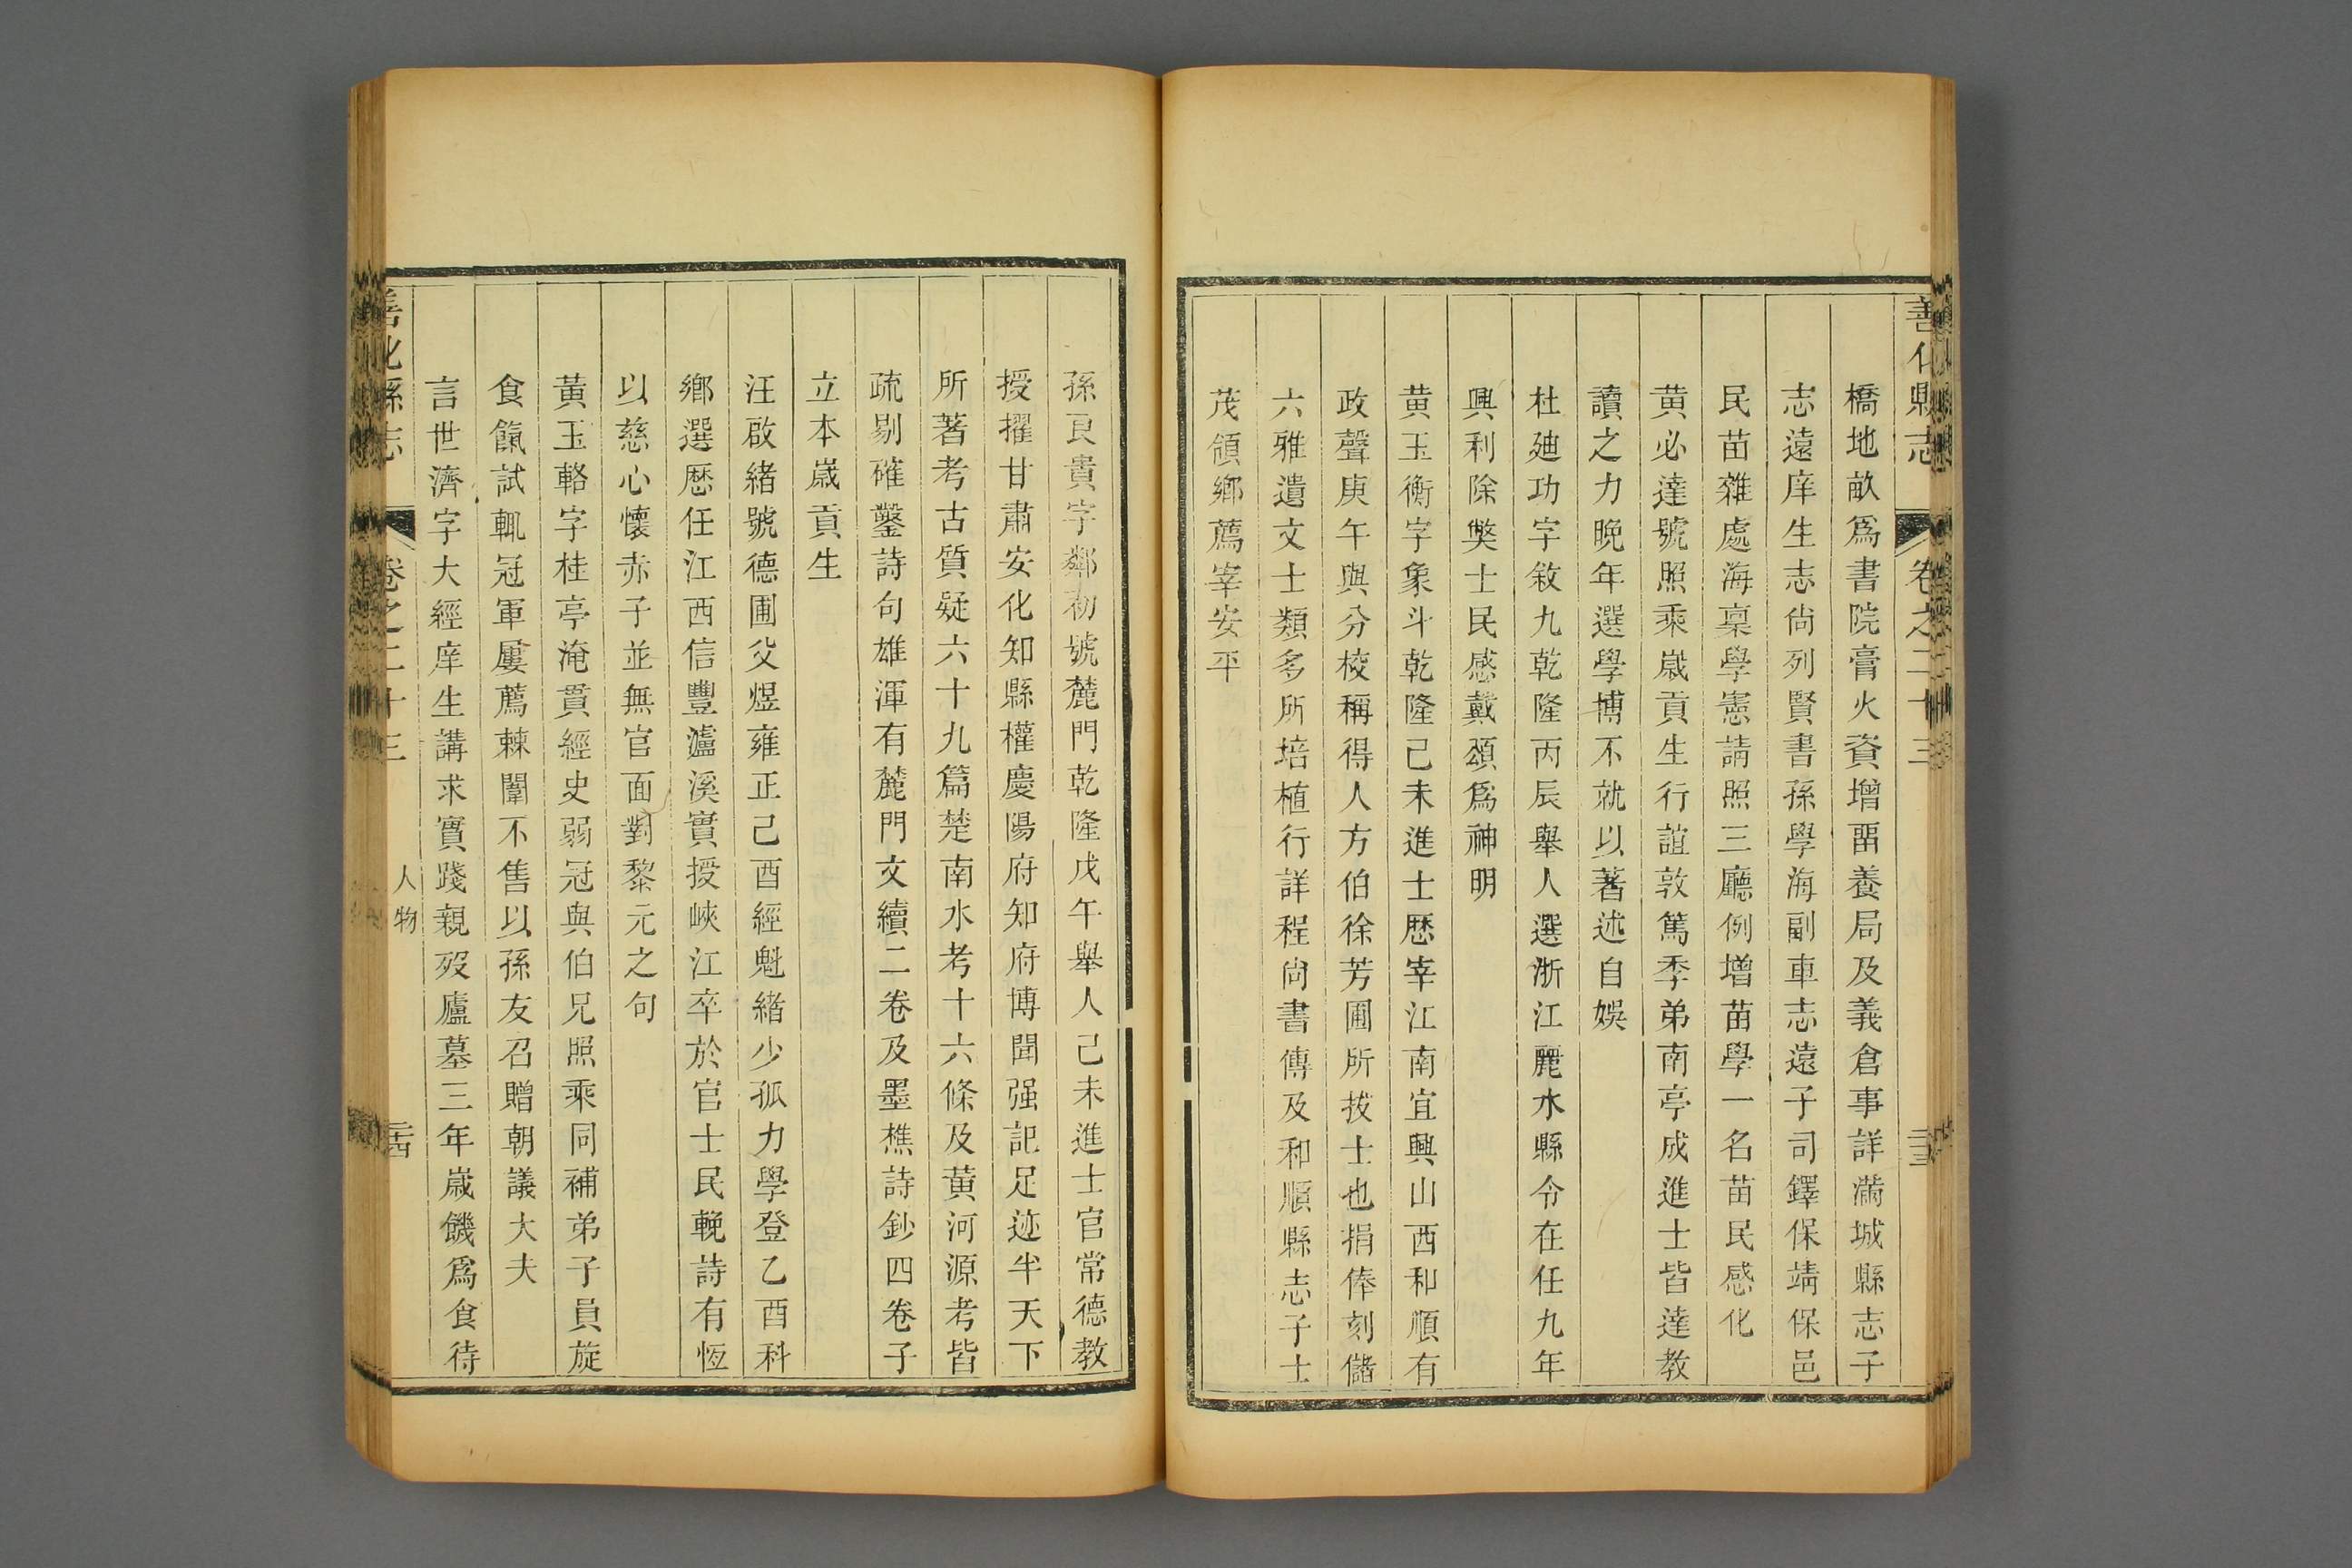 善化縣志
卷之二十三
二十三
橋地畝爲書院膏火資增畱養局及義倉事詳滿城縣志子
志遠庠生志尙列賢書孫學海副車志遠子司鐸保靖保邑
民苗雜處海稟學憲請照三廳例增苗學一名苗民感化
黄必達號照乘歲貢生行誼敦篤季弟南亭成進士皆達教
讀之力晚年選學博不就以著述自娛
杜廸功字敘九乾隆丙辰舉人選浙江麗水縣令在任九年
興利除獘士民感戴頌爲神明
黄玉衡字象斗乾隆己未進士歷宰江南宜興山西和順有
政聲庚午與分校稱得人方伯徐芳圃所拔士也捐俸刻儲
六雅遺文士類多所培植行詳程尙書傳及和順縣志子士
茂領鄉薦宰安平
孫良貴字鄰初號麓門乾隆戊午舉人己未進士官常德教
授擢甘肅安化知縣權慶陽府知府博聞强記足迹半天下
所著考古質疑六十九篇楚南水考十六條及黄河源考皆
疏剔確鑿詩句雄渾有麓門文續二卷及墨樵詩鈔四卷子
立本歲貢生
汪啟緒號德圃父煜雍正己酉經魁緒少孤力學登乙酉科
鄉選歷任江西信豐瀘溪實授峽江卒於官士民輓詩有恆
以慈心懷赤子並無官面對黎元之句
黃玉輅字桂亭淹貫經史弱冠與伯兄照乘同補弟子員旋
食餼試輒冠軍屢薦棘闈不售以孫友召贈朝議大夫
言世濟字大經庠生講求實踐親歿廬墓三年歲饑爲食待
善化縣志
卷之二十三
人物
二十四